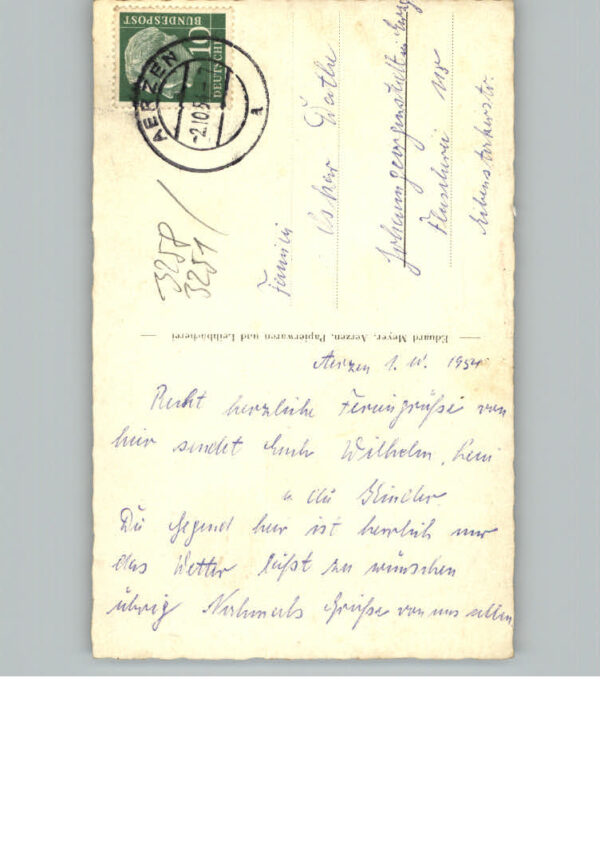 DEUTSCHE
BUNDESPOST
10
AERZEN
-2.10.5
a
3258
3251
Familie
Oskar
Johanngeorgenstadt
Eibenstockerstr.
Eduard Meyer, Aerzen, Papierwaren und Leihbücherei
Aerzen 1. 10. 1954
Recht herzliche Feriengrüße von
hier sendet Euch Wilhelm,
u. die Kinder.
Die Gegend hier ist herrlich nur
das Wetter läßt zu wünschen
übrig Nochmals Grüße von uns allen